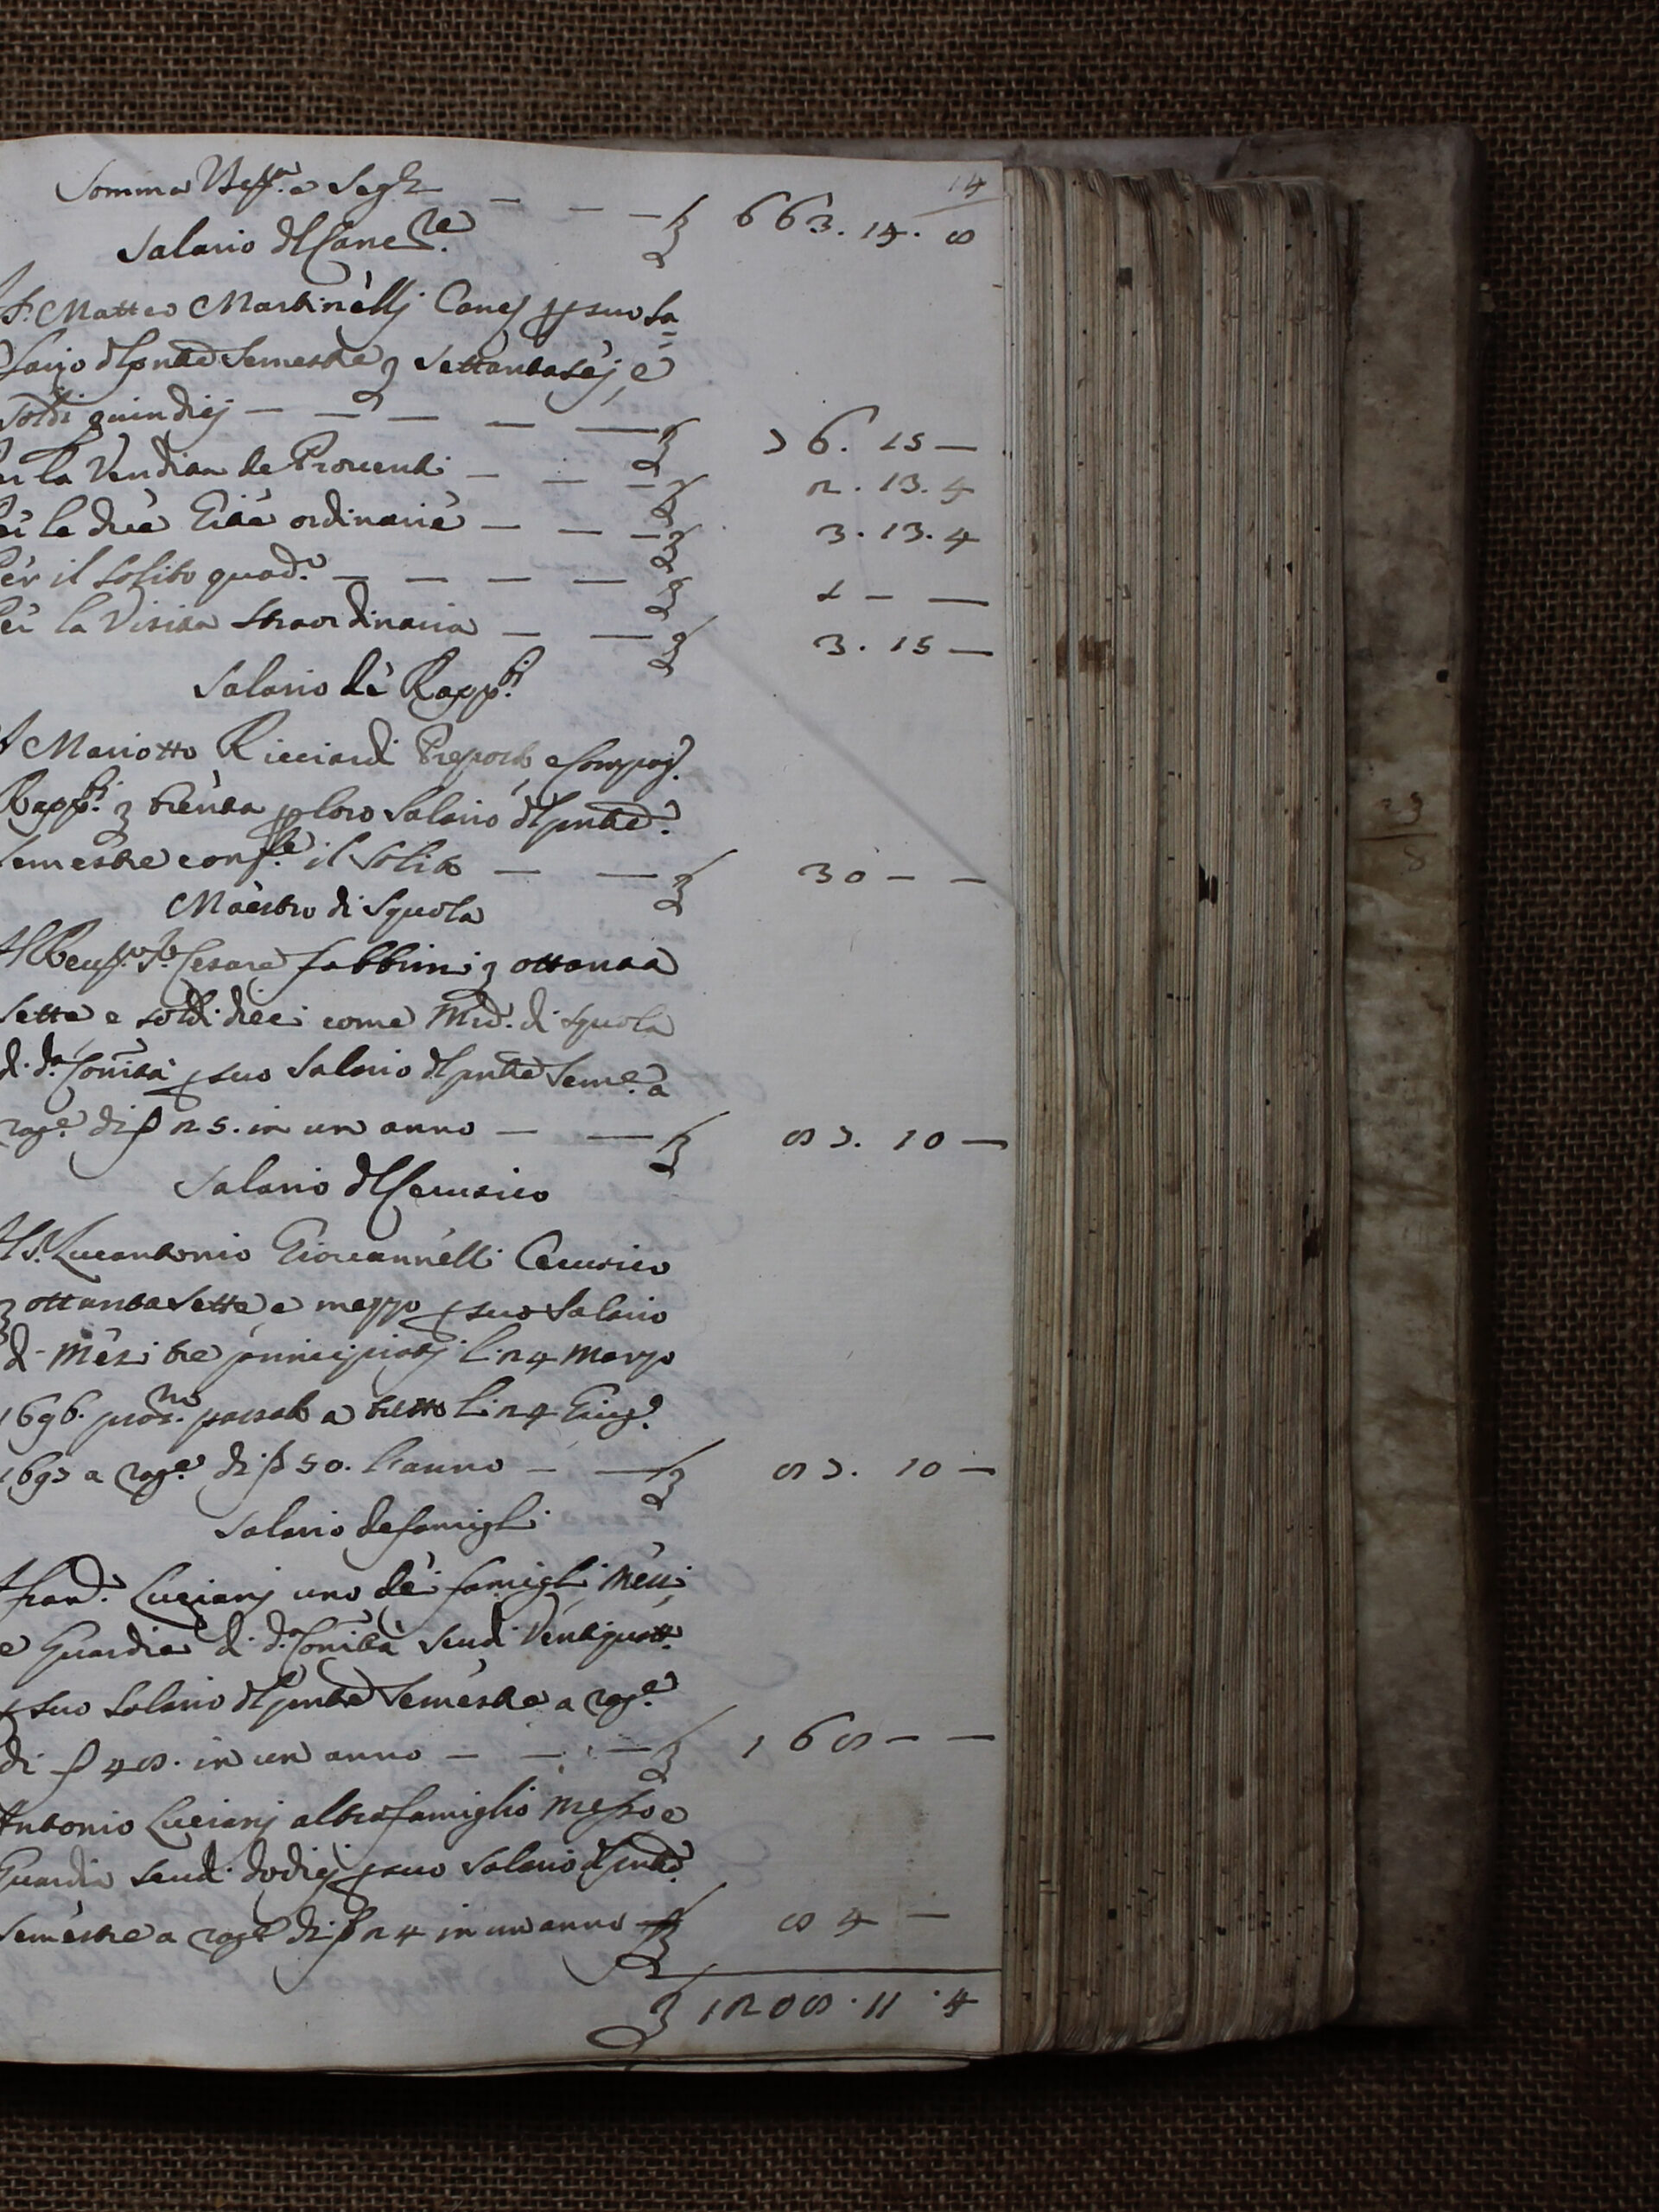 14
Somma Uscᵗᵃ e Segᵉ — — — £ 663. 14. 8
Salario del Cancʳᵉ
S. Matteo Martinelli Cancʳ p suo Sa=
lario dl pnte Semestre £ Settantasej, e
soldi quindicj — — — — — £ 76. 15 —
la Vendita de Proventi — — — £ 2. 13. 4
le due Gite ordinarie — — — £ 3. 13. 4
Per il solito quadᵒ — — — — £ 1 — —
la Visita straordinaria — — £ 3. 15 —
Salario dè Rapptⁱ
A Mariotto Ricciardi Preposto, e Compagⁱ
Rapptⁱ £ trenta p loro Salario dl pnte
Semestre confᵉ il Solito — — £ 30 — —
Maestro di Squola
Al Cesare Fabbrini £ ottanta
sette e soldi dieci come Mrõ. di squola
di dᵃ Comità p suo Salario dl pnte Semᵉ a
ragᵉ di ƒ 25. in un anno — — £ 87. 10 —
Salario dl Cerusico
Al S. Lucantonio Giovannelli Cerusico
£ ottantasette e mezzo p suo Salario
di Mesi tre principiati li 24 Marzo
1696. prosᵐᵒ passato a tutto li 24 Giugᵒ
1697 a ragᵉ di ƒ 50. l'anno — — £ 87. 10 —
Salario de famigli
A Franᶜᵒ Lucianj uno dei famigli, Messi,
e Guardie di dᵃ Comità Scudi Ventiquattᵒ
p suo Salario dl pnte Semestre a ragᵉ
di ƒ 48. in un anno — — — £ 168 — —
Antonio Lucianj altro famiglio Messo e
Guardia Scudi dodicj p suo Salario dl pnte
Semestre a ragᵉ di ƒ 24 in un anno £ 84 —
£ 1208. 11. 4